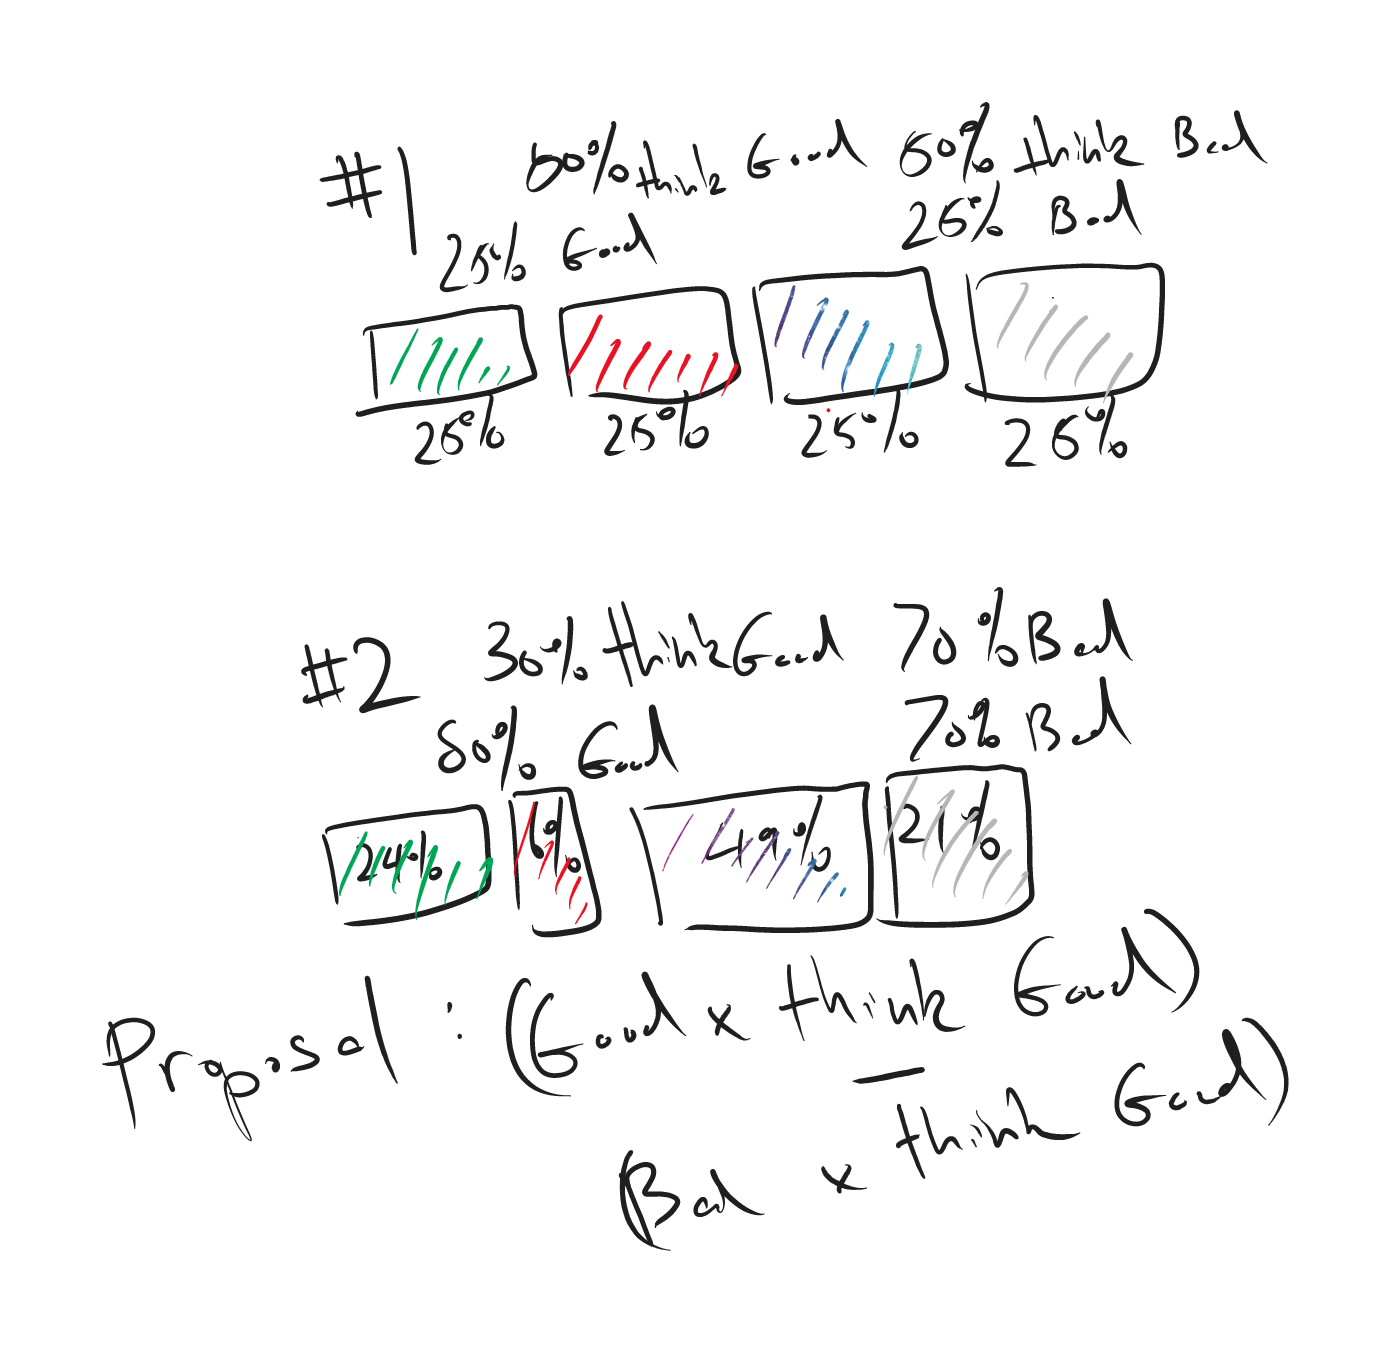 #1 50% think Good 50% think Bad
25% Good 25% Bad
25% 25% 25% 25%
#2 30% think Good 70% Bad
80% Good 70% Bad
24% 6% 49% 21%
Proposal : (Good x think Good)
—
(Bad x think Good)